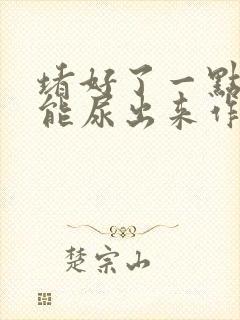 堵好了一點
能尿出来作
楚宗山